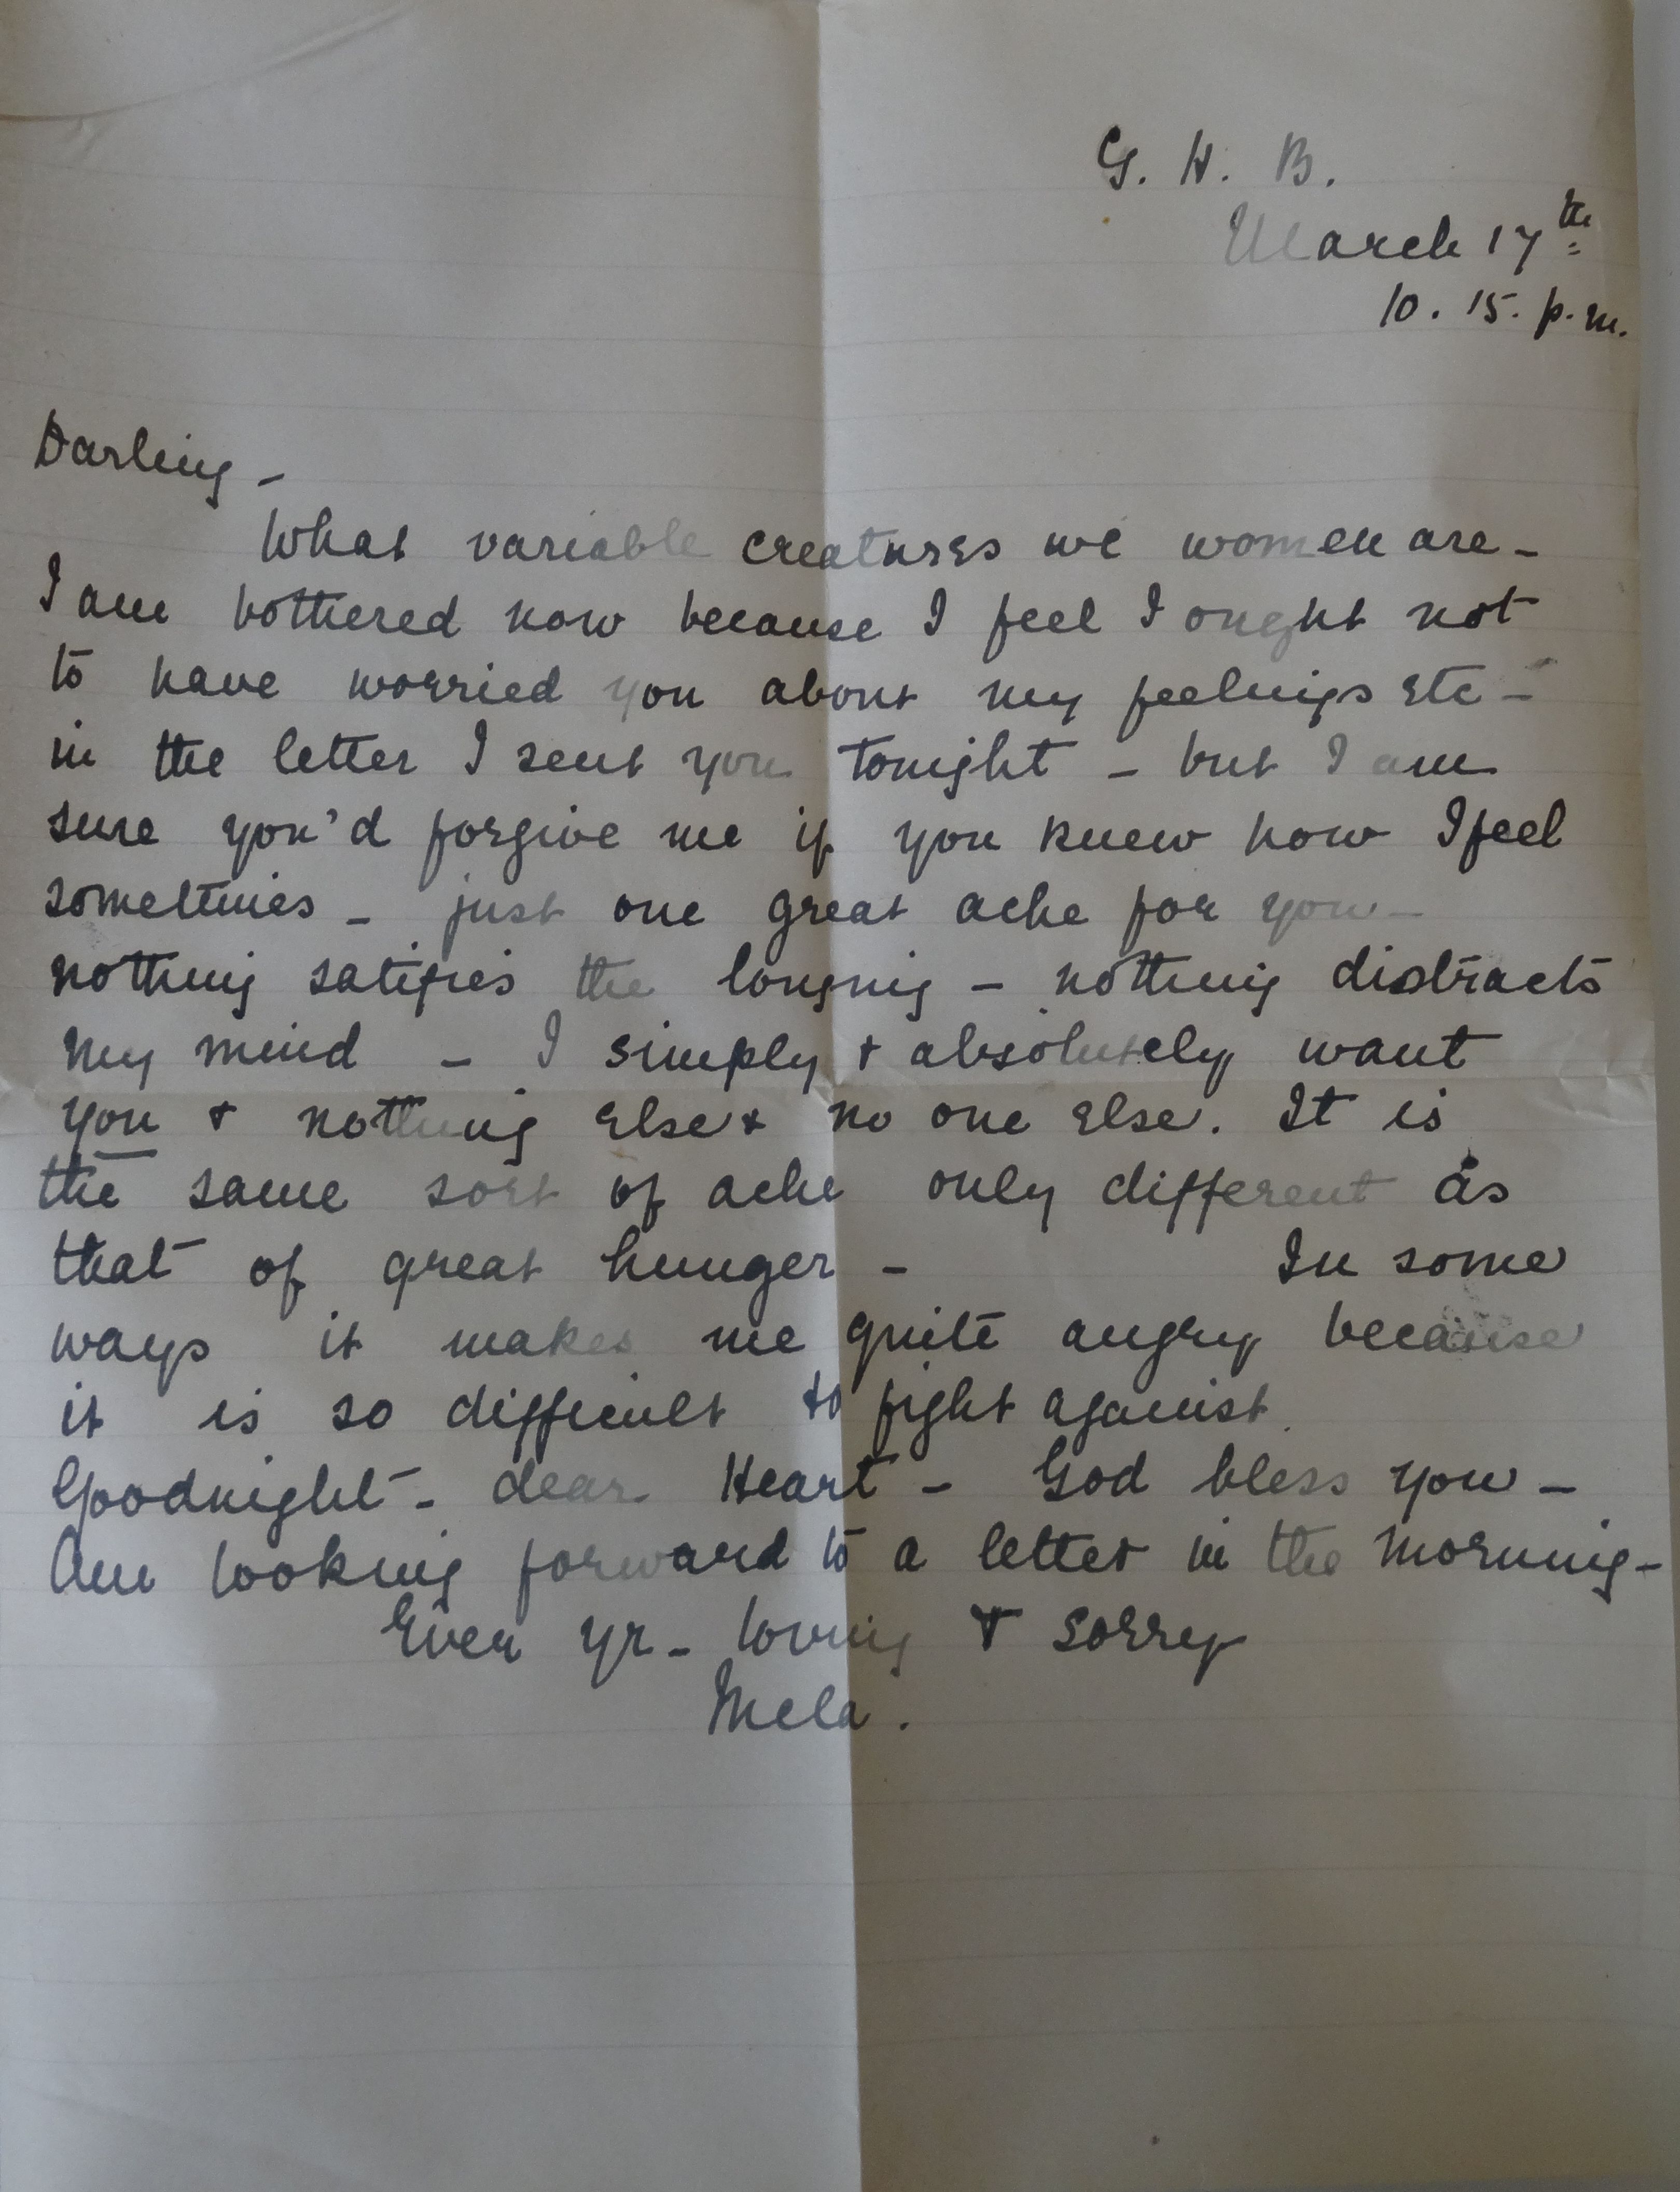 G. H. B.
March 17th
10. 15. p.m.
Darling -
What variable creatures we women are -
I am bothered now because I feel I ought not
to have worried you about my feelings etc -
in the letter I sent you tonight - but I am
sure you'd forgive me if you knew how I feel
sometimes - just one great ache for you -
nothing satifies the longing - nothing distracts
my mind - I simply & absolutely want
you & nothing else & no one else. It is
the same sort of ache only different as
that of great hunger - In some
ways it makes me quite angry because
it is so difficult to fight against.
Goodnight - dear Heart - God bless you -
Am looking forward to a letter in the morning -
Ever yr - loving & sorry
Mela.